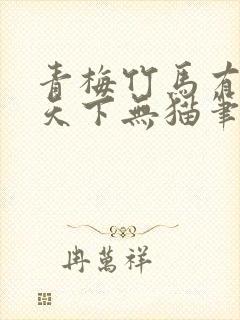 青梅竹馬有
天下無猫筆
冉萬祥